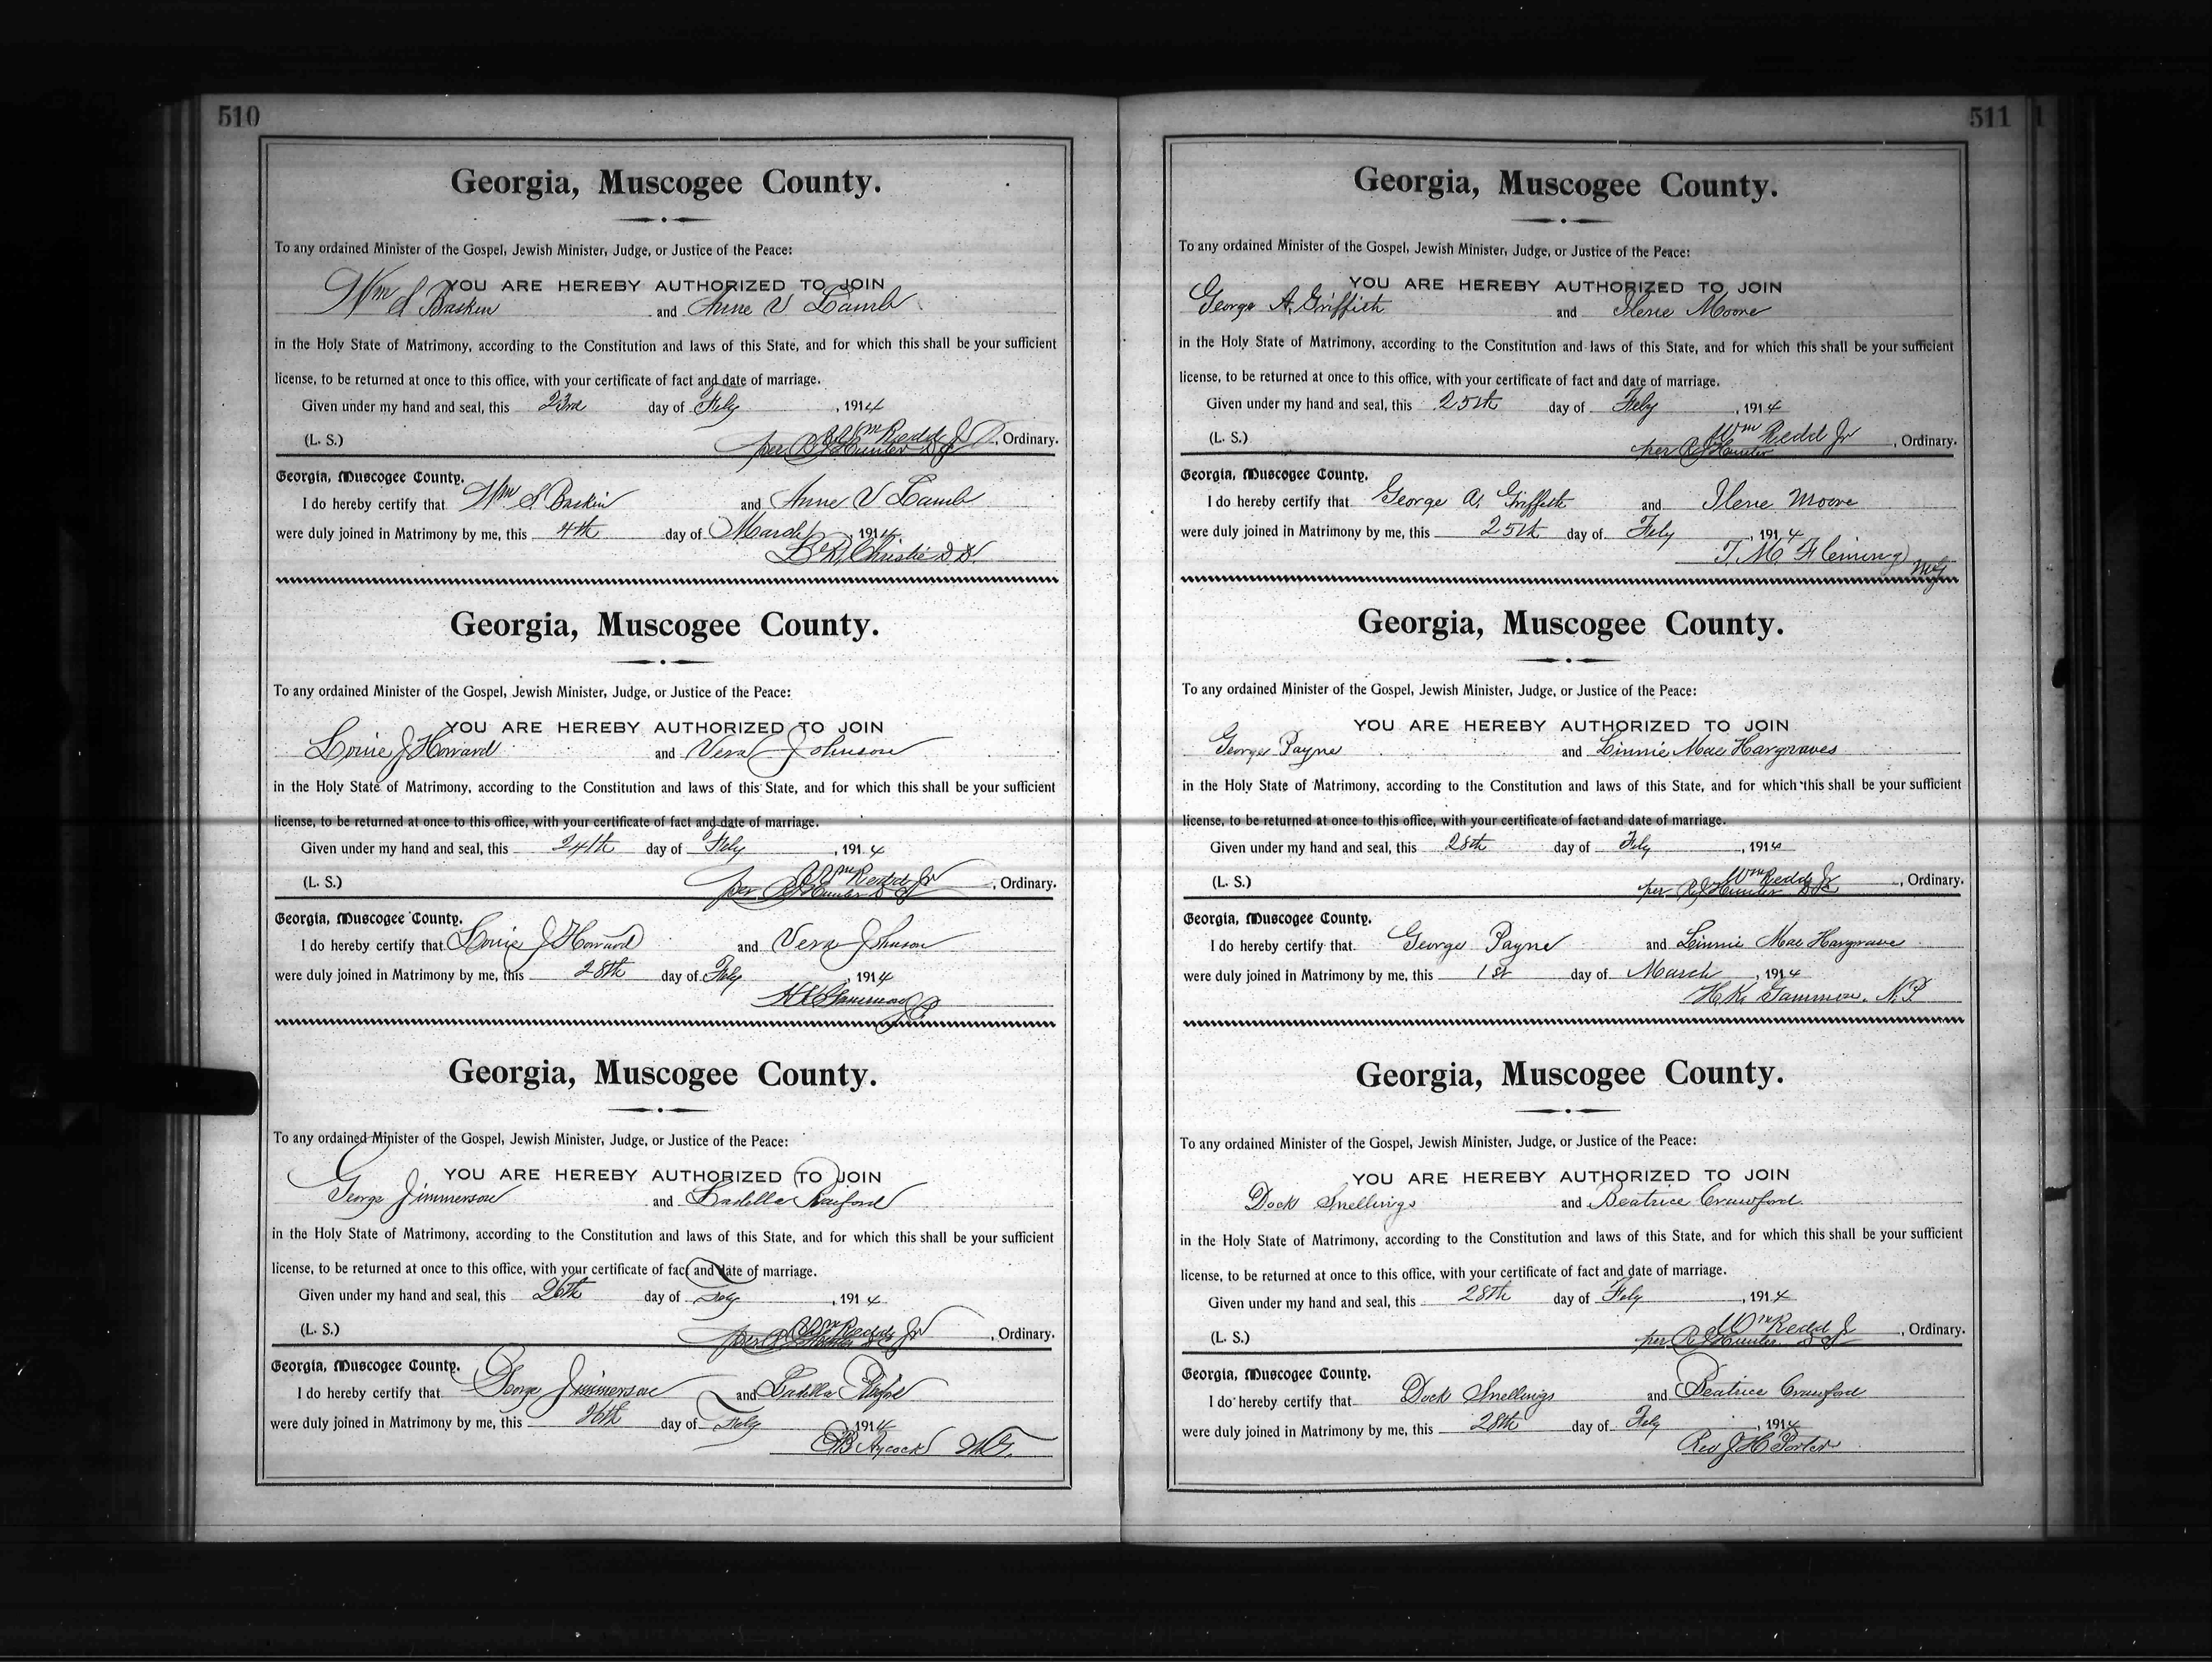 510
Georgia, Muscogee County.
To any ordained Minister of the Gospel, Jewish Minister, Judge, or Justice of the Peace:
YOU ARE HEREBY AUTHORIZED TO JOIN
Wm S Baskin and Anne V Lamb
in the Holy State of Matrimony, according to the Constitution and laws of this State, and for which this shall be your sufficient
license, to be returned at once to this office, with your certificate of fact and date of marriage.
Given under my hand and seal, this 23rd day of Feby , 1914
(L. S.) Wm Redd Jr , Ordinary.
per R J Hunter
Georgia, Muscogee County.
I do hereby certify that Wm S Baskin and Anne V Lamb
were duly joined in Matrimony by me, this 4th day of March , 1914
L R Christie D.D.
Georgia, Muscogee County.
To any ordained Minister of the Gospel, Jewish Minister, Judge, or Justice of the Peace:
YOU ARE HEREBY AUTHORIZED TO JOIN
Louie J Howard and Vera Johnson
in the Holy State of Matrimony, according to the Constitution and laws of this State, and for which this shall be your sufficient
license, to be returned at once to this office, with your certificate of fact and date of marriage.
Given under my hand and seal, this 24th day of Feby , 1914
(L. S.) Wm Redd Jr , Ordinary.
per R J Hunter
Georgia, Muscogee County.
I do hereby certify that Louie J Howard and Vera Johnson
were duly joined in Matrimony by me, this 28th day of Feby , 1914
Georgia, Muscogee County.
To any ordained Minister of the Gospel, Jewish Minister, Judge, or Justice of the Peace:
YOU ARE HEREBY AUTHORIZED TO JOIN
George Jimmerson and Ladella
in the Holy State of Matrimony, according to the Constitution and laws of this State, and for which this shall be your sufficient
license, to be returned at once to this office, with your certificate of fact and date of marriage.
Given under my hand and seal, this 26th day of Feby , 1914
(L. S.) Wm Redd Jr , Ordinary.
per R J Hunter
Georgia, Muscogee County.
I do hereby certify that George Jimmerson and Ladella
were duly joined in Matrimony by me, this 26th day of Feby , 1914
Aycock M.G.
511
Georgia, Muscogee County.
To any ordained Minister of the Gospel, Jewish Minister, Judge, or Justice of the Peace:
YOU ARE HEREBY AUTHORIZED TO JOIN
George A. Griffith and Ilene Moore
in the Holy State of Matrimony, according to the Constitution and laws of this State, and for which this shall be your sufficient
license, to be returned at once to this office, with your certificate of fact and date of marriage.
Given under my hand and seal, this 25th day of Feby , 1914
(L. S.) Wm Redd Jr , Ordinary.
per R J Hunter
Georgia, Muscogee County.
I do hereby certify that George A. Griffith and Ilene Moore
were duly joined in Matrimony by me, this 25th day of Feby , 1914
T. M. Fleming MG
Georgia, Muscogee County.
To any ordained Minister of the Gospel, Jewish Minister, Judge, or Justice of the Peace:
YOU ARE HEREBY AUTHORIZED TO JOIN
George Payne and Linnie Mae Hargraves
in the Holy State of Matrimony, according to the Constitution and laws of this State, and for which this shall be your sufficient
license, to be returned at once to this office, with your certificate of fact and date of marriage.
Given under my hand and seal, this 28th day of Feby , 1914
(L. S.) Wm Redd Jr , Ordinary.
per R J Hunter
Georgia, Muscogee County.
I do hereby certify that George Payne and Linnie Mae Hargrave
were duly joined in Matrimony by me, this 1st day of March , 1914
H. K. Gammon. N.P
Georgia, Muscogee County.
To any ordained Minister of the Gospel, Jewish Minister, Judge, or Justice of the Peace:
YOU ARE HEREBY AUTHORIZED TO JOIN
Dock Snellings and Beatrice Crawford
in the Holy State of Matrimony, according to the Constitution and laws of this State, and for which this shall be your sufficient
license, to be returned at once to this office, with your certificate of fact and date of marriage.
Given under my hand and seal, this 28th day of Feby , 1914
(L. S.) Wm Redd Jr , Ordinary.
per R J Hunter
Georgia, Muscogee County.
I do hereby certify that Dock Snellings and Beatrice Crawford
were duly joined in Matrimony by me, this 28th day of Feby , 1914
Rev J H Porter